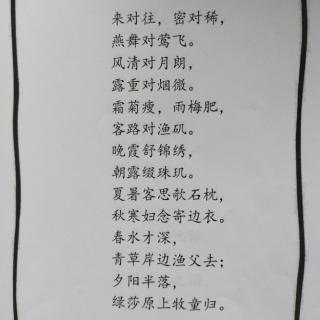 来对往，密对稀，
燕舞对莺飞。
风清对月朗，
露重对烟微。
霜菊瘦，雨梅肥，
客路对渔矶。
晚霞舒锦绣，
朝露缀珠玑。
夏暑客思欹石枕，
秋寒妇念寄边衣。
春水才深，
青草岸边渔父去；
夕阳半落，
绿莎原上牧童归。